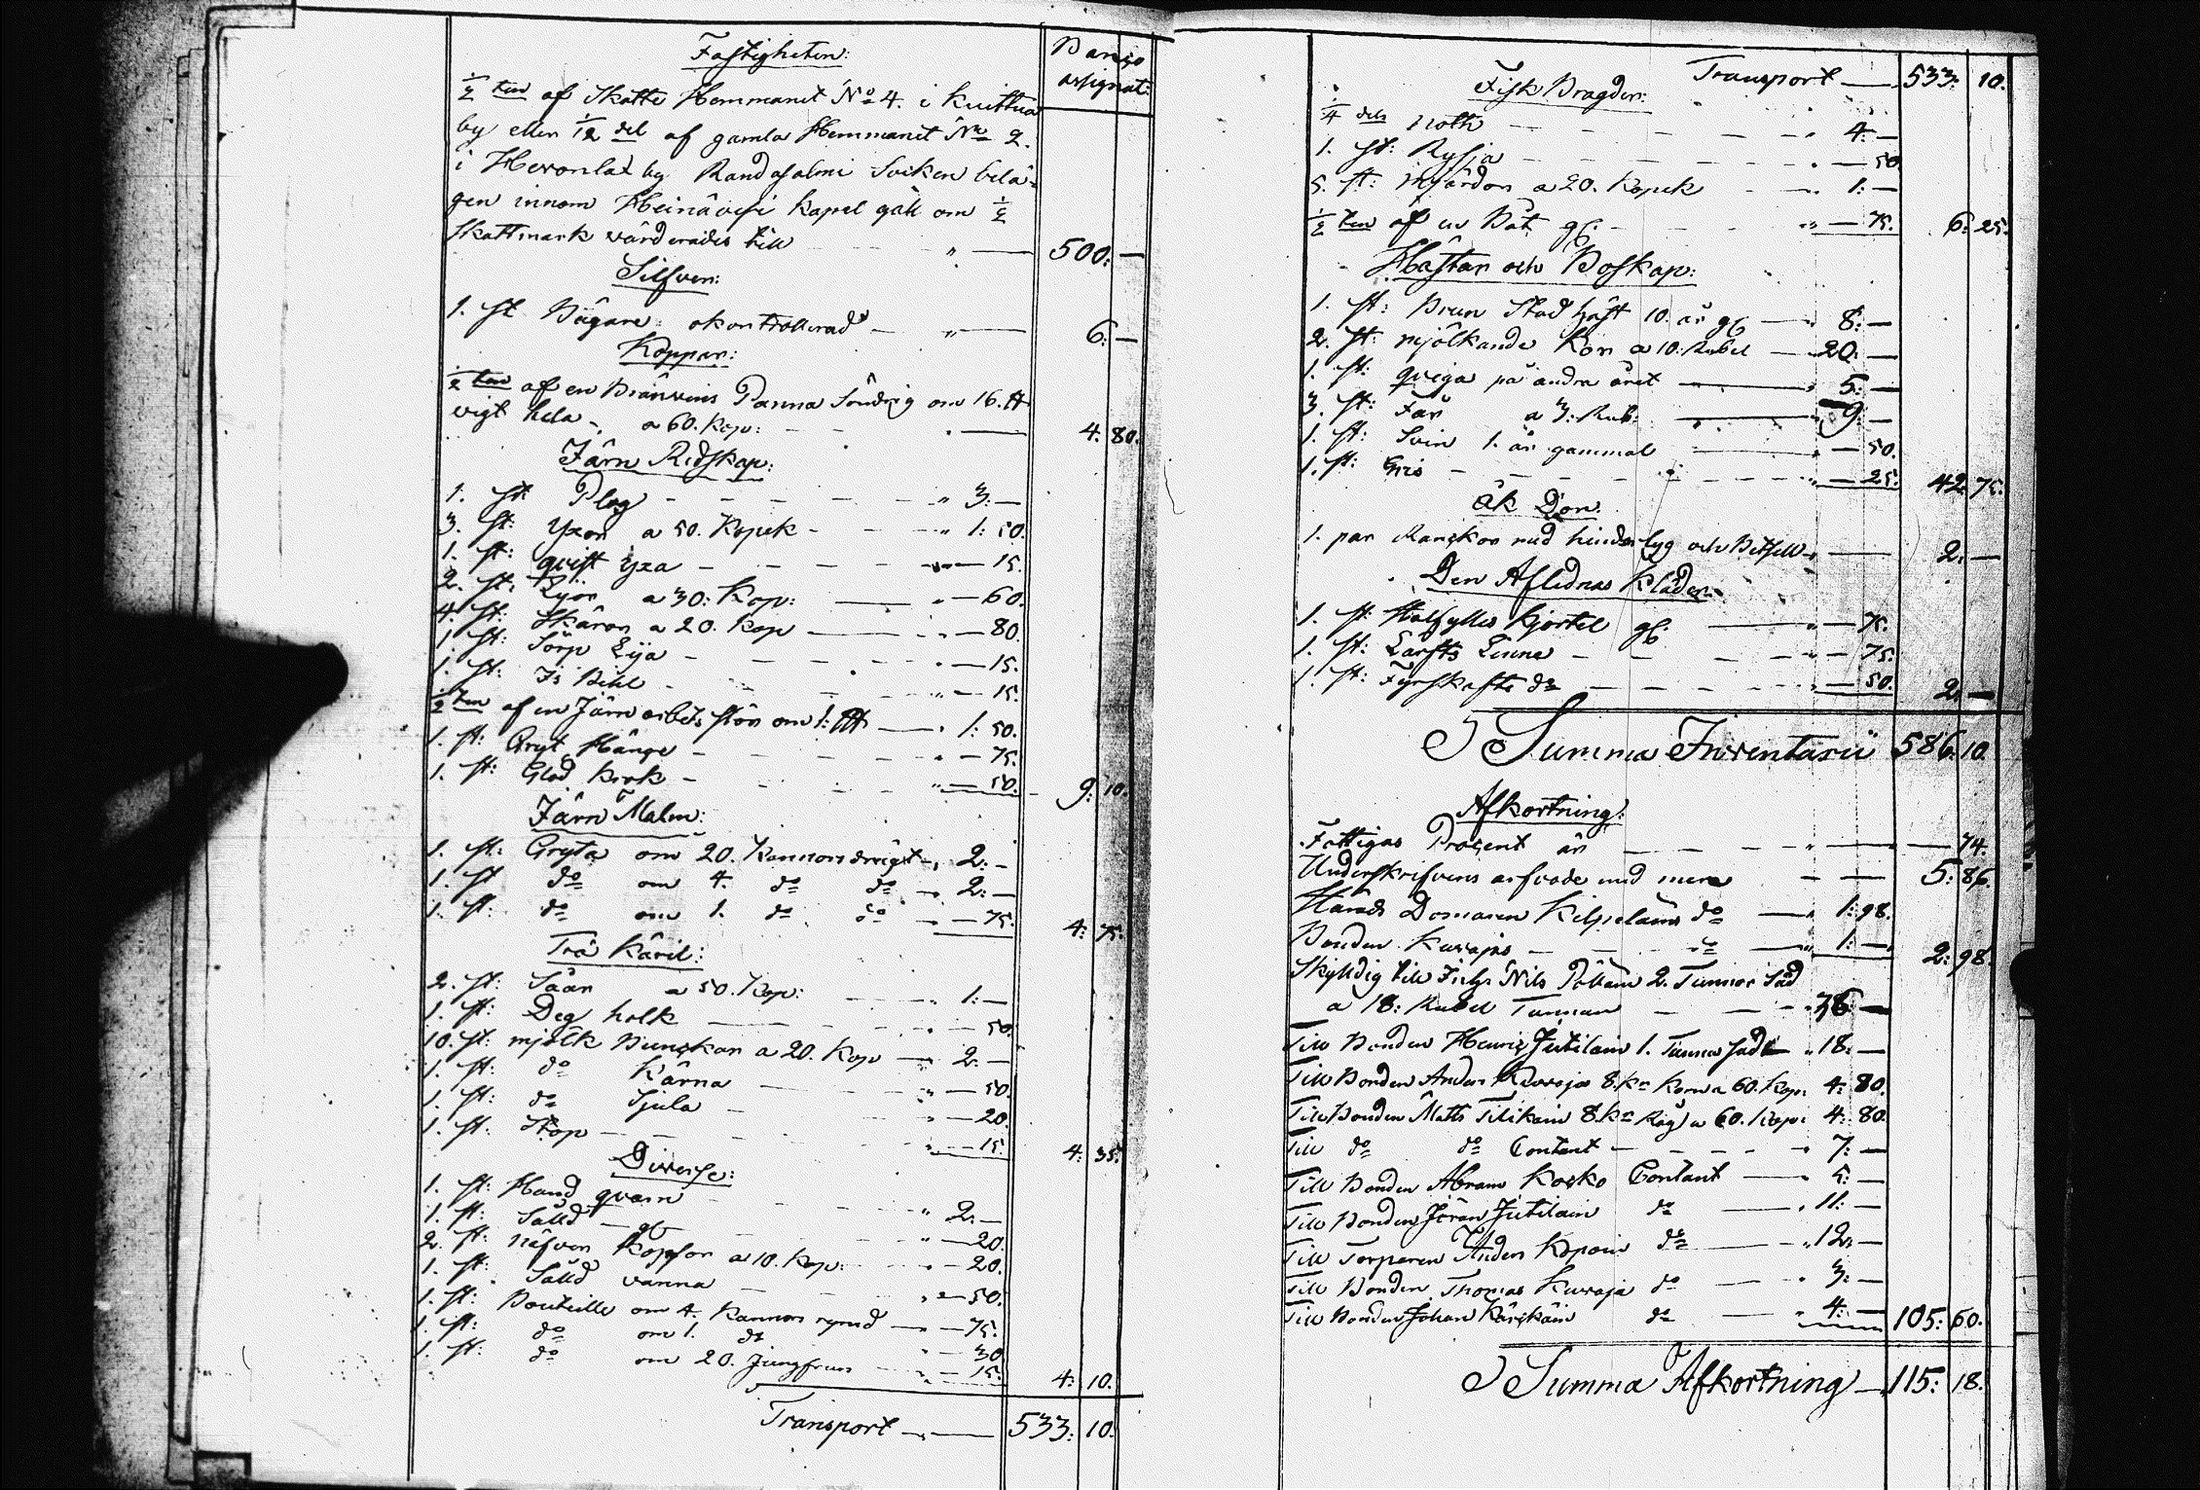 Fastigheten:
Banco assignat:
½ ten af Skatte Hemmanet No 4. i Kuittua
by eller 1/12 del af gamla Hemmanet No 2.
i Heronlax by Randasalmi Soiken belä-
gen innom Heinävesi Kapel gäll om ½
Skattmark värderades till " — 500: —
Silfver:
1. st Bägare okontrollerad — " — 6: —
Koppar:
½ ten af en Bränvins Panna Söndrig om 16. ℔
vigt hela - a 60. Kop: — 4. 80.
Järn Redskap:
1. st: Plog - - - " 3: —
3. st: Yxor a 50. Kopek - - " 1: 50.
1. st: qvist Yxa - - - — 15.
2. st: Lyor a 30: Kop: — " — 60.
4. st: Skäror a 20. Kop — " — 80.
1. st: Sörp Lija - - - " — 15.
1. st: Is Bihl - - - " — 15.
½ ten af en Järn arbets stör om 1: L℔ — " 1: 50.
1. st: Gryt Hänge - - - " — 75.
1. st: Glöd krok - - - " — 50. 9: 10.
Järn Malm:
1. st: Gryta om 20. Kannors drägt - " 2: -
1. st do om 4. do do " 2: —
1. st: do om 1. do do — 75. 4: 75.
Trä Käril:
2. st: Såar a 50. Kop: " 1: —
1. st: Deg holk — " — 50.
10. st: mjölk Bunckar a 20. Kop — " 2: —
1. st: do Kärna — " — 50.
1. st: do Sjula - " — 20.
1. st: Stop - - - " — 15. 4: 35.
Diverse:
1. st: Hand qvarn - - - " 2: —
1. st: Såld — gl - " — 20.
2. st: Näfver Koppor a 10. Kop: " — 20.
1. st: Sälld vanna — " — 50.
1. st: Bouteille om 4. Kannors rymd — " — 75.
1. st: do om 1. do " — 30
1. st: do om 20. Jungfrur " — 15. 4: 10.
Transport — 533: 10.
Transport — 533: 10.
Fisk Bragder:
¼ dels Noth - - - " 4: —
1. st: Rysja - - - " — 50.
5. st: Skjärdor a 20. Kopek - " 1: —
½ ten af en Båt gl: - - - " — 75. 6: 25.
Hästar och Boskap:
1. st: Brun Stod häst 10. år gl — " 8: —
2. st: mjölkande Kor a 10: Rubel — " 20: —
1. st: qviga på andra året — " 5: —
3. st: Får a 3: Rub: — " 9: —
1. st: Svin 1. år gammal — " — 50.
1. st: Gris - - - " — 25. 42: 75.
Åk Don.
1. par Ranckor med hinder tyg och Betsell — 2: —
Den Aflidnas Kläder:
1. st: Halfylles kjortel gl: — " — 75.
1. st: Larfts Linne - - - " — 75.
1. st: Fyrskafts do - - - " — 50. 2: —
Summa Inventarii 586: 10.
Afkortning:
Fattigas Procent är — — 74.
Underskrifvens arfvode med mera — — 5: 86.
Härads Domaren Kilpeläins do — " 1: 98.
Bonden Kurajas - - do — " 1: — 2: 98.
Skyldig till Nils 2. Tunnor Säd
a 18: Rubel Tunnan — - - " 36: —
Till Bonden Henric Jutilain 1. Tunna Säd " 18: —
Till Bonden Anders Kuraja 8. kr Korn a 60. Kop: 4: 80.
Till Bonden Matts Tilikain 8. kr Råg a 60. Kop: 4: 80.
Till do do Contant - - - " 7: —
Till Bonden Abram Kosko Contant — " 5: —
Till Bonden Jöran Jutilain do — " 11: —
Till Torparen Anders Kopoin do — " 12: —
Till Bonden Thomas Kuraja do — " 3: —
Till Bonden Johan do — " 4: — 105: 60.
Summa Afkortning — 115: 18.